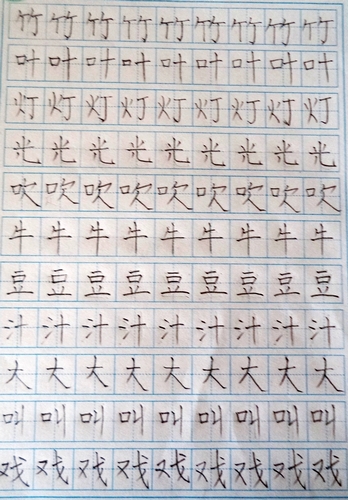 竹竹竹竹竹竹竹竹竹
叶叶叶叶叶叶叶叶叶
灯灯灯灯灯灯灯灯灯
光光光光光光光光光
吹吹吹吹吹吹吹吹吹
牛牛牛牛牛牛牛牛牛
豆豆豆豆豆豆豆豆豆
汁汁汁汁汁汁汁汁汁
大大大大大大大大大
叫叫叫叫叫叫叫叫叫
戏戏戏戏戏戏戏戏戏